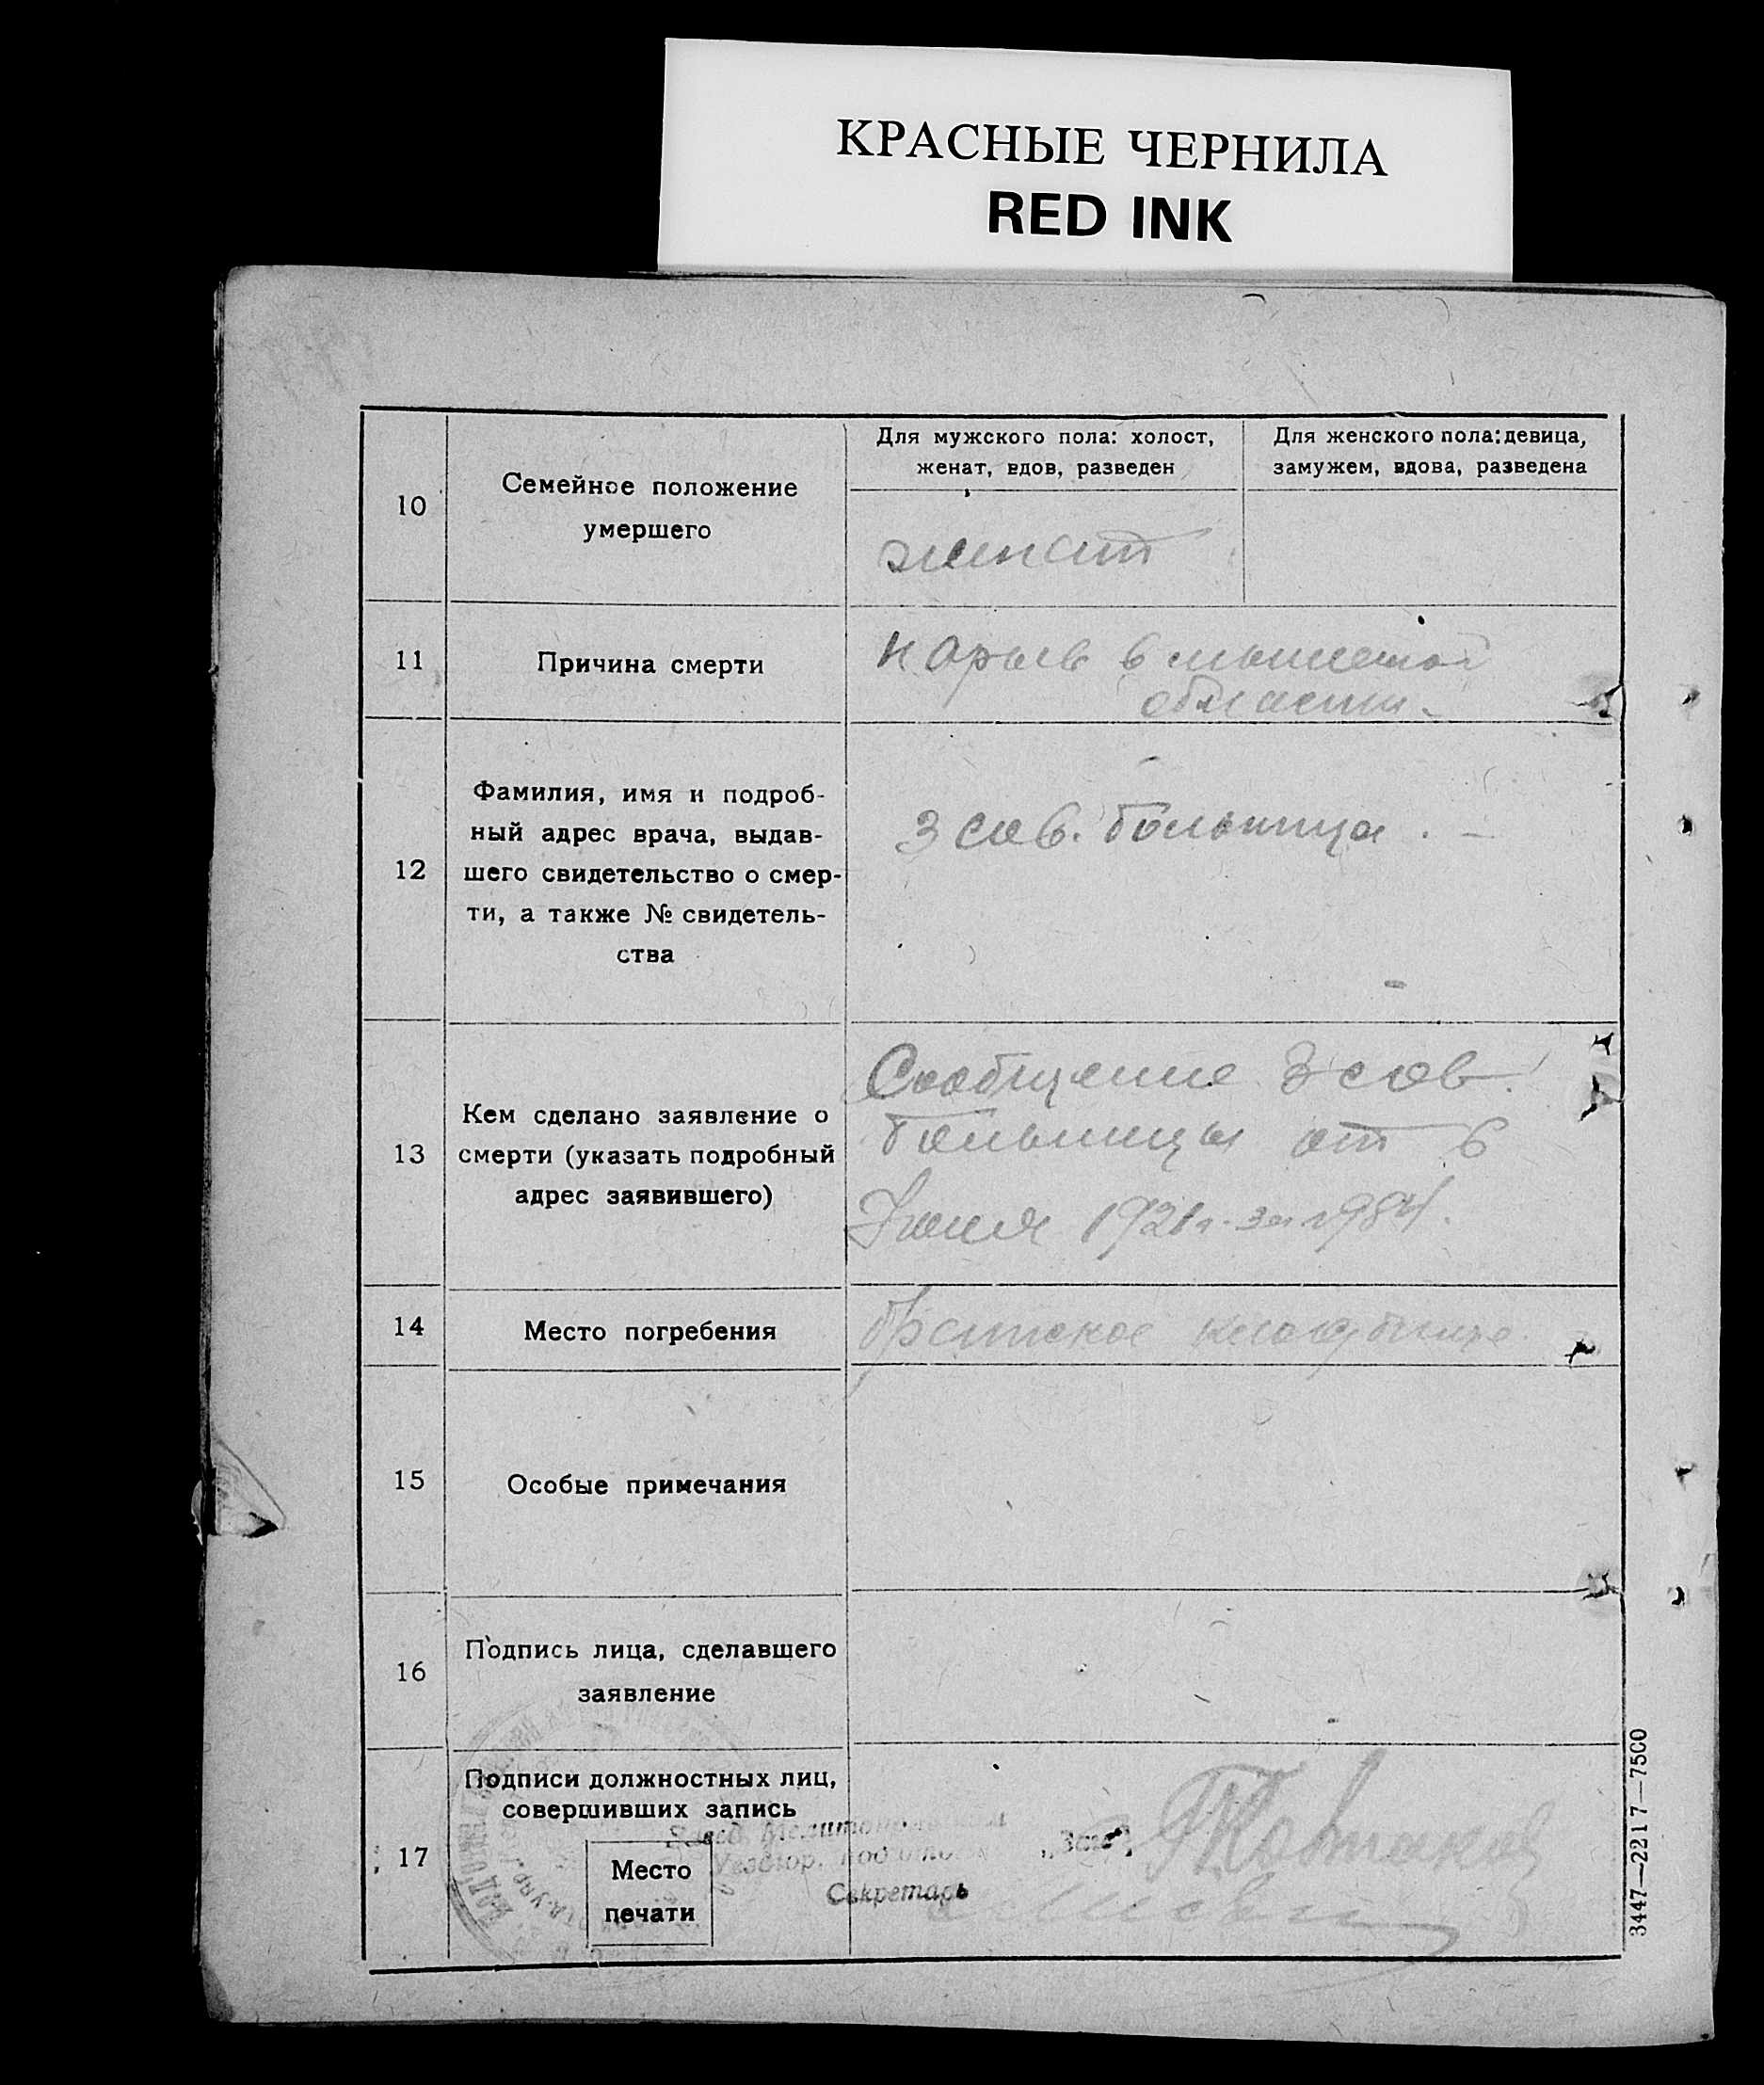 КРАСНЫЕ ЧЕРНИЛА
RED INK
10
Семейное положение
умершего
Для мужского пола: холост,
женат, вдов, разведен
Для женского пола: девица,
замужем, вдова, разведена
женат
11
Причина смерти
нарыв в
области.
12
Фамилия, имя и подроб-
ный адрес врача, выдав-
шего свидетельство о смер-
ти, а также № свидетель-
ства
3 сов. больница. –
13
Кем сделано заявление о
смерти (указать подробный
адрес заявившего)
Сообщение 3 сов.
больницы от 6
1921г. за
14
Место погребения
братское кладбище.
15
Особые примечания
16
Подпись лица, сделавшего
заявление
17
Подписи должностных лиц,
совершивших запись
Место
печати
Завед. Мелитопольским
Уездюр. Подотд. „Загс“,
Секретарь
3447—2217—7500